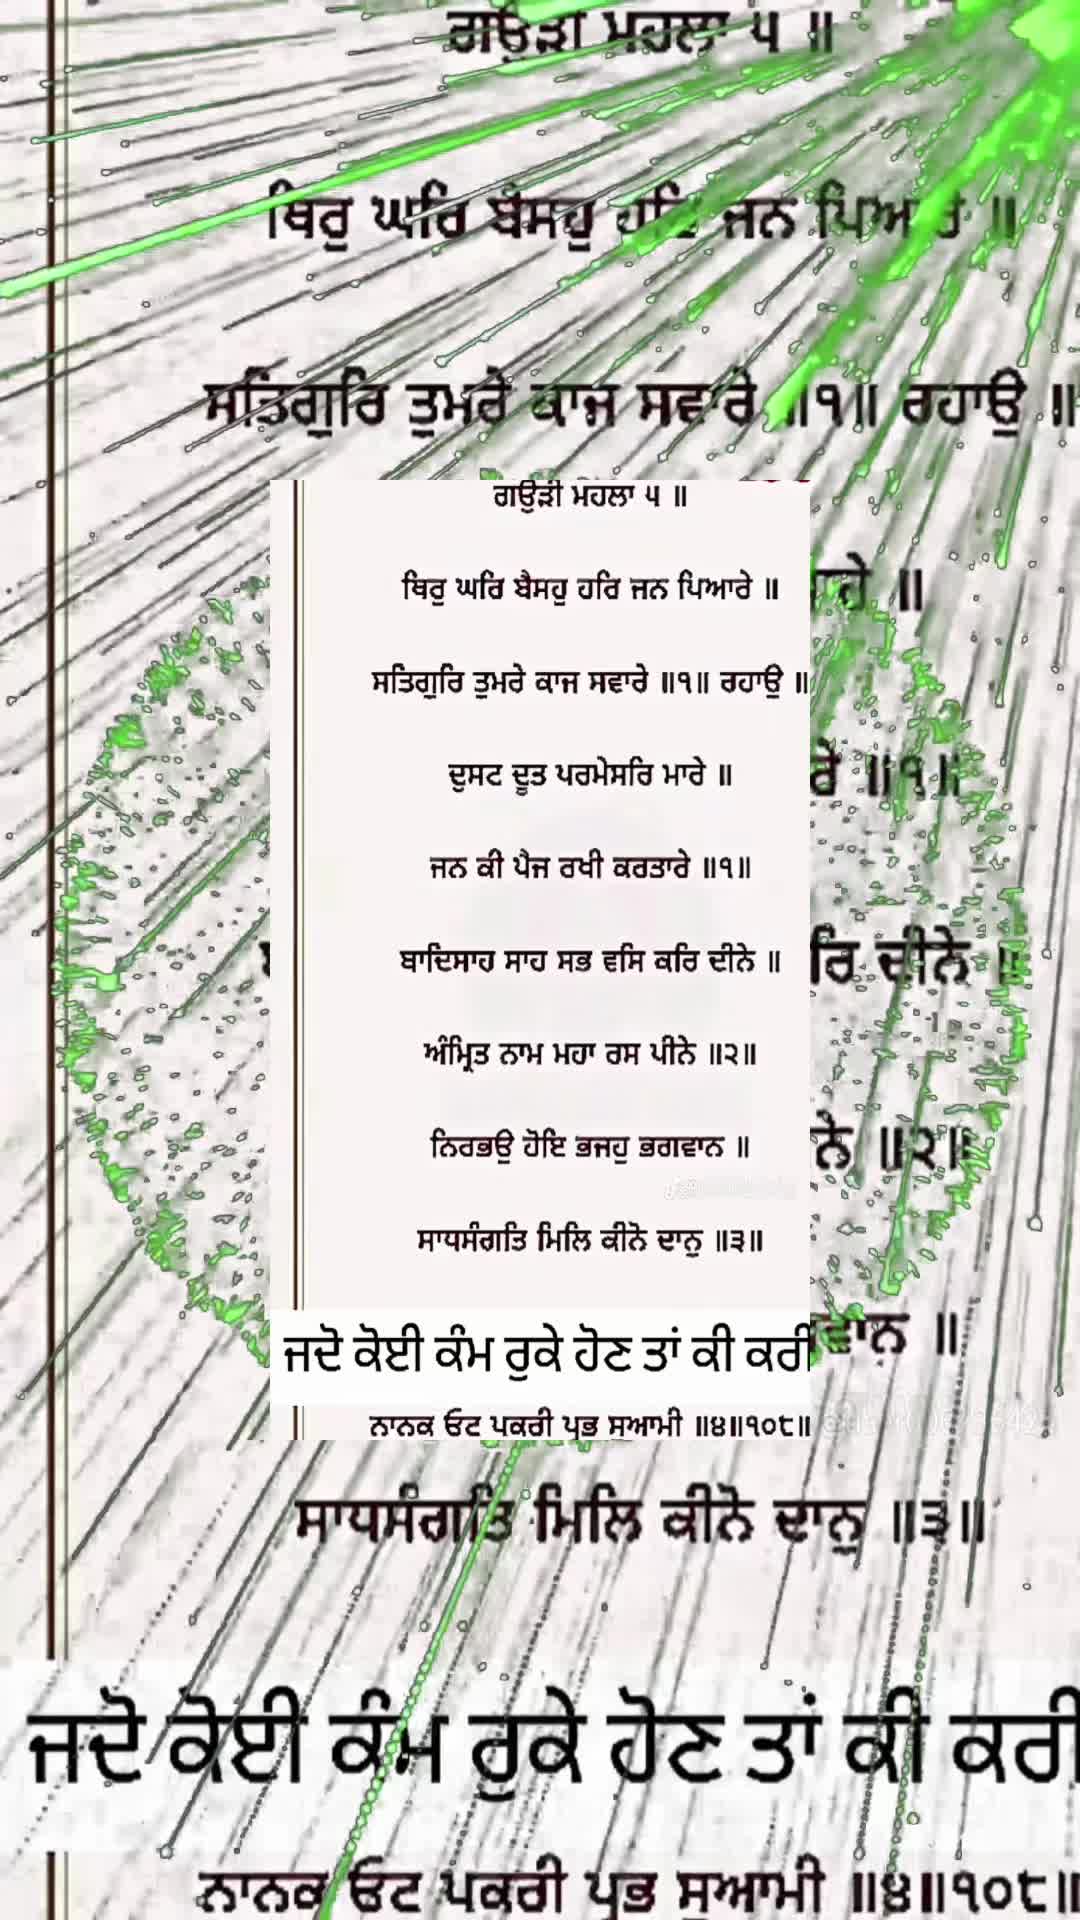 ਗਉੜੀ ਮਹਲਾ ੫ ॥
ਥਿਰੁ ਘਰਿ ਬੈਸਹੁ ਹਰਿ ਜਨ ਪਿਆਰੇ ॥
ਸਤਿਗੁਰਿ ਤੁਮਰੇ ਕਾਜ ਸਵਾਰੇ ॥੧॥ ਰਹਾਉ ॥
ਗਉੜੀ ਮਹਲਾ ੫ ॥
ਥਿਰੁ ਘਰਿ ਬੈਸਹੁ ਹਰਿ ਜਨ ਪਿਆਰੇ ॥
ਸਤਿਗੁਰਿ ਤੁਮਰੇ ਕਾਜ ਸਵਾਰੇ ॥੧॥ ਰਹਾਉ ॥
ਦੁਸਟ ਦੂਤ ਪਰਮੇਸਰਿ ਮਾਰੇ ॥
ਜਨ ਕੀ ਪੈਜ ਰਖੀ ਕਰਤਾਰੇ ॥੧॥
ਬਾਦਿਸਾਹ ਸਾਹ ਸਭ ਵਸਿ ਕਰਿ ਦੀਨੇ ॥
ਅੰਮ੍ਰਿਤ ਨਾਮ ਮਹਾ ਰਸ ਪੀਨੇ ॥੨॥
ਨਿਰਭਉ ਹੋਇ ਭਜਹੁ ਭਗਵਾਨ ॥
ਸਾਧਸੰਗਤਿ ਮਿਲਿ ਕੀਨੋ ਦਾਨੁ ॥੩॥
ਜਦੋ ਕੋਈ ਕੰਮ ਰੁਕੇ ਹੋਣ ਤਾਂ ਕੀ ਕਰੀ
ਨਾਨਕ ਓਟ ਪਕਰੀ ਪ੍ਰਭ ਸੁਆਮੀ ॥੪॥੧੦੮॥
ਸਾਧਸੰਗਤਿ ਮਿਲਿ ਕੀਨੋ ਦਾਨੁ ॥੩॥
ਜਦੋ ਕੋਈ ਕੰਮ ਰੁਕੇ ਹੋਣ ਤਾਂ ਕੀ ਕਰੀ
ਨਾਨਕ ਓਟ ਪਕਰੀ ਪ੍ਰਭ ਸੁਆਮੀ ॥੪॥੧੦੮॥